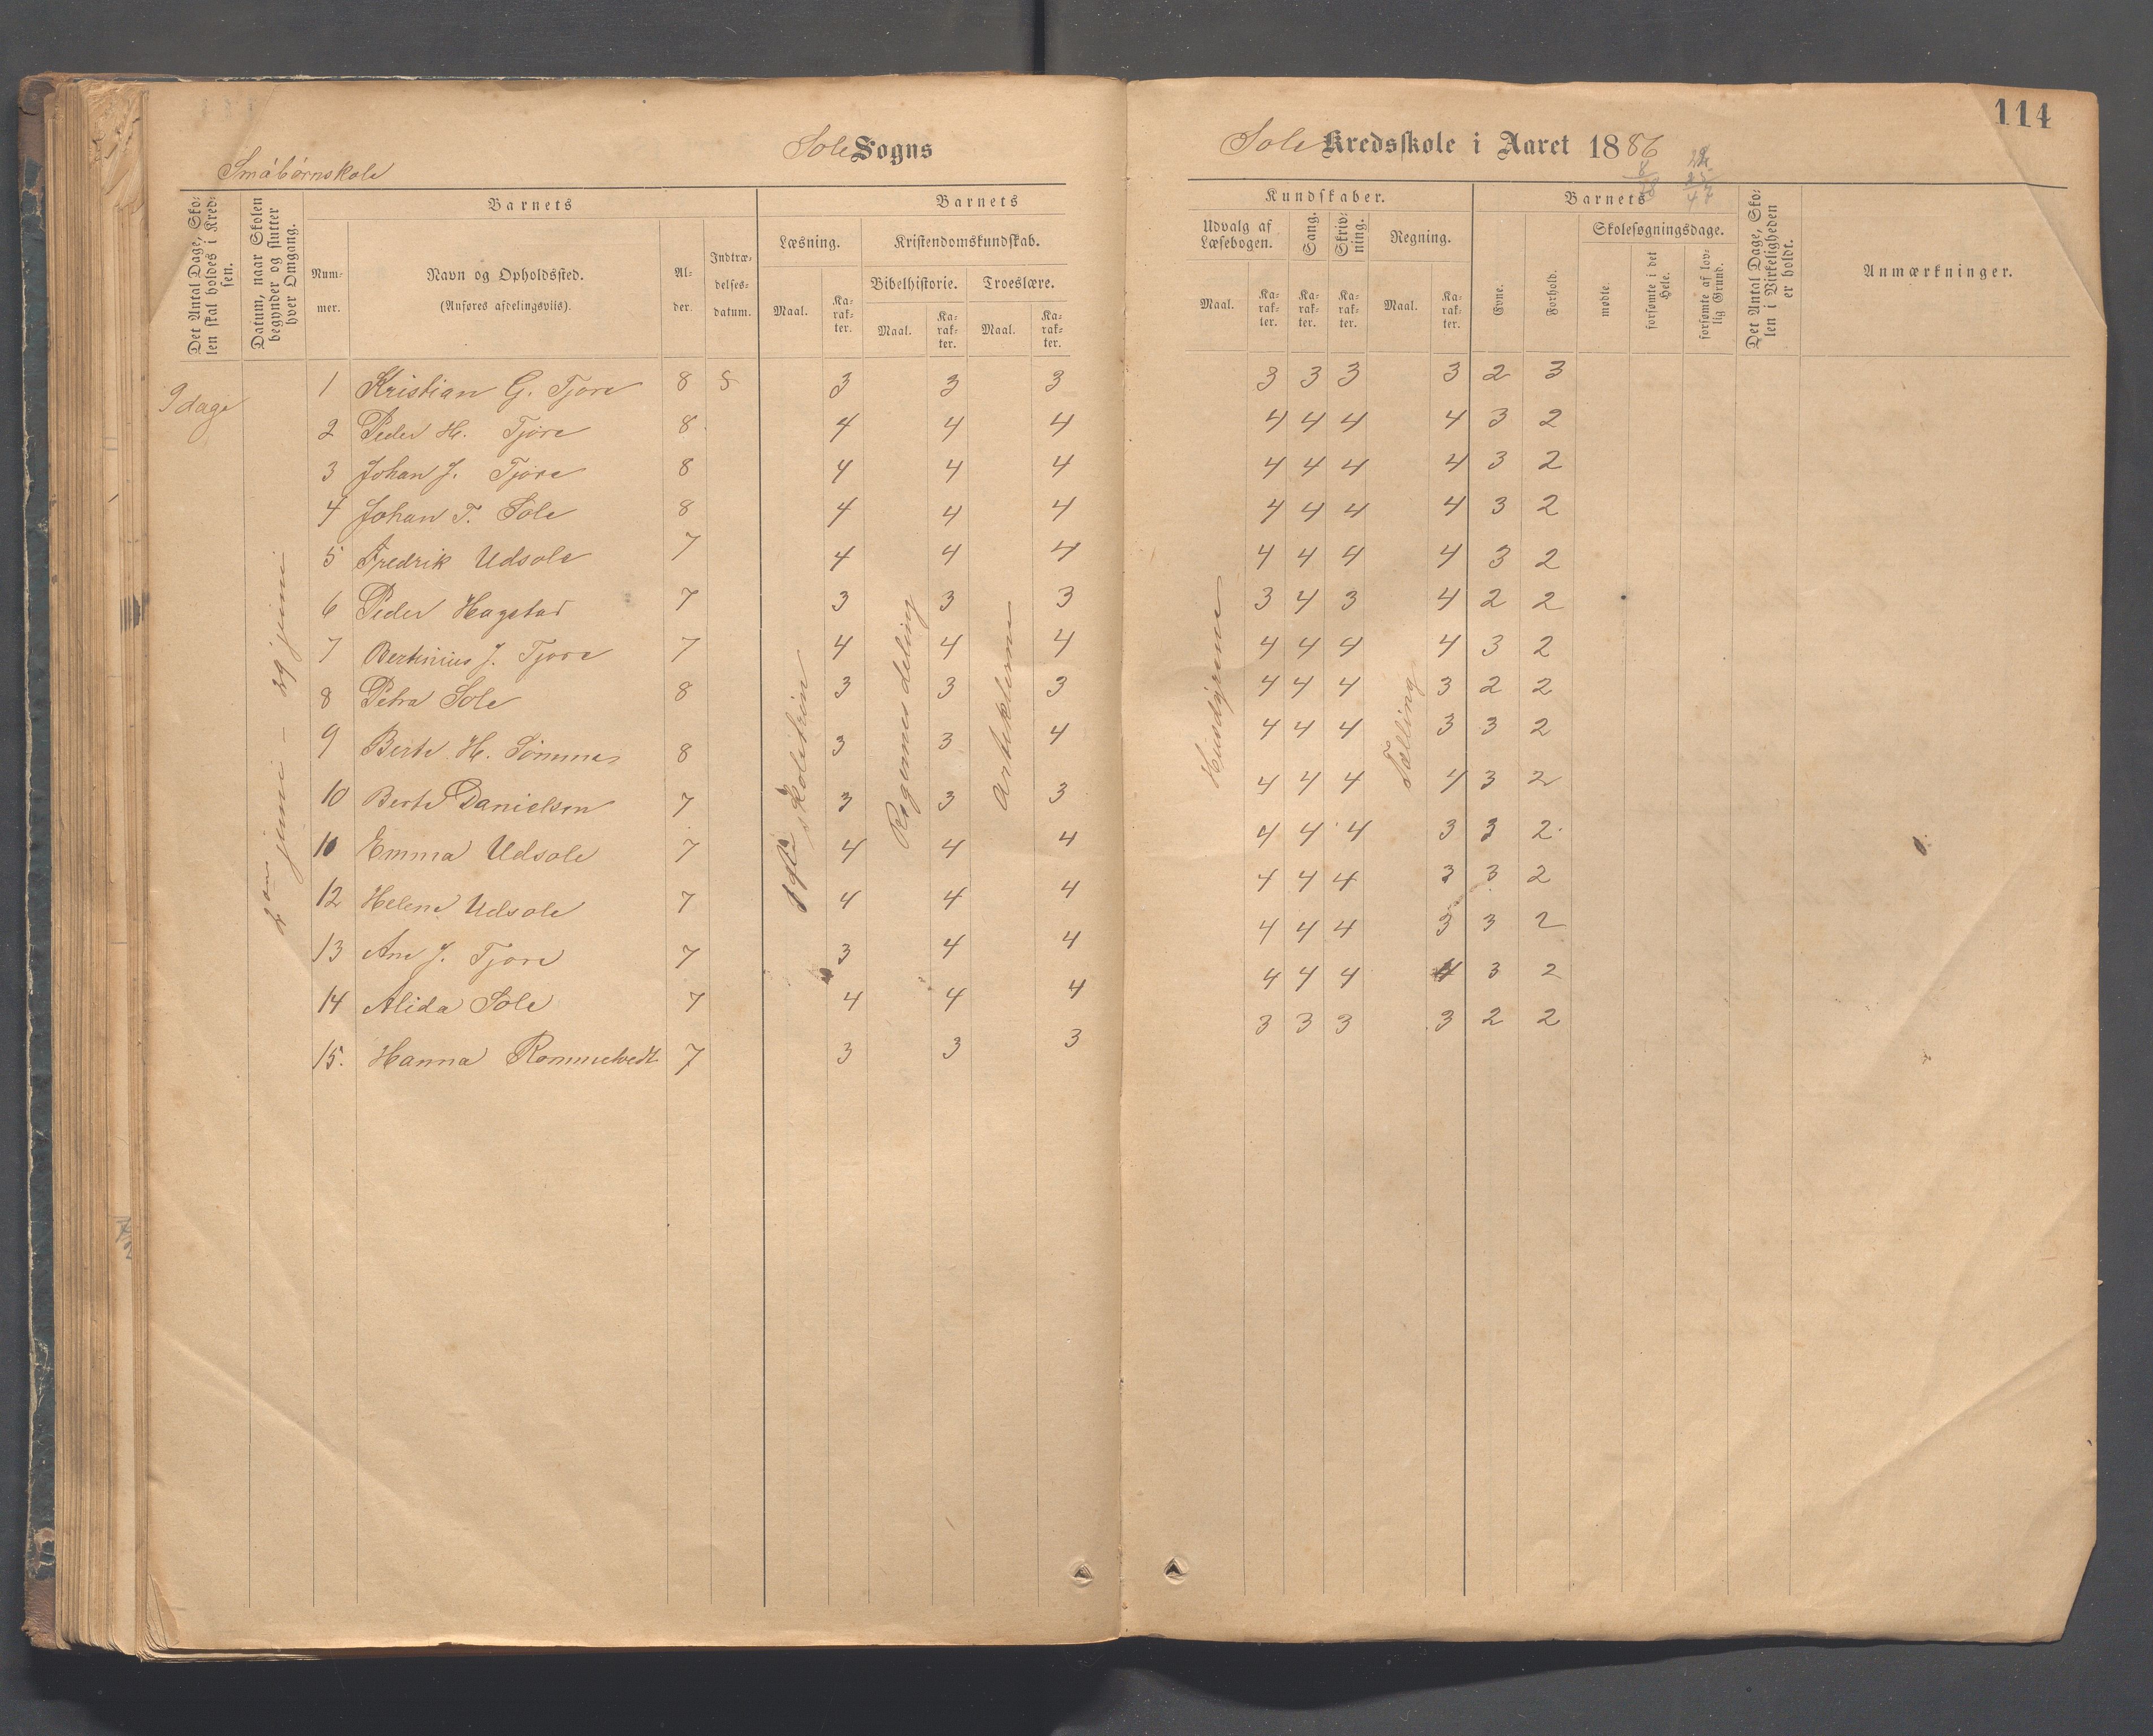 114
Sole Sogns
Sole Kredsskole i Aaret 1886
Småbørnskole
Det Antal Dage, Skolen skal holdes i Kredsen.
Datum, naar Skolen begynder og slutter hver Omgang.
Barnets
Nummer.
Navn og Opholdssted.
(Anføres afdelingsviis).
Alder.
Indtrædelsesdatum.
Barnets
Læsning.
Maal.
Karakter.
Kristendomskundskab.
Bibelhistorie.
Maal.
Karakter.
Troeslære.
Maal.
Karakter.
Kundskaber.
Udvalg af Læsebogen.
Maal.
Karakter.
Sang.
Karakter.
Skrivning.
Karakter.
Regning.
Maal.
Karakter.
Barnets
Evne.
Forhold.
Skolesøgningsdage.
mødte.
forsømte i det Hele.
forsømte af lovlig Grund.
Det Antal Dage, Skolen i Virkeligheden er holdt.
Anmærkninger.
9 dage
juni - 29 juni
Tælling
1 Kristian G. Tjore 8 3 3 3 3 3 3 3 2 3
2 Peder H. Tjore 8 4 4 4 4 4 4 4 3 2
3 Johan J. Tjore 8 4 4 4 4 4 4 4 3 2
4 Johan T. Sole 8 4 4 4 4 4 4 4 3 2
5 Fredrik Udsole 7 4 4 4 4 4 4 4 3 2
6 Peder Hagstad 7 3 3 3 3 4 3 4 2 2
7 Bertinius J. Tjore 7 4 4 4 4 4 4 4 3 2
8 Petra Sole 8 3 3 3 4 4 4 3 2 2
9 Berte H. Sømme 8 3 3 4 4 4 4 3 3 2
10 Berte Danielsen 7 3 3 3 4 4 4 4 3 2
10 Emma Udsole 7 4 4 4 4 4 4 3 3 2
12 Helene Udsole 7 4 4 4 4 4 4 3 3 2
13 Ane J. Tjore 7 3 4 4 4 4 4 3 3 2
14 Alida Sole 7 4 4 4 4 4 4 4 3 2
15. Hanna Rommetvedt 7 3 3 3 3 3 3 3 2 2